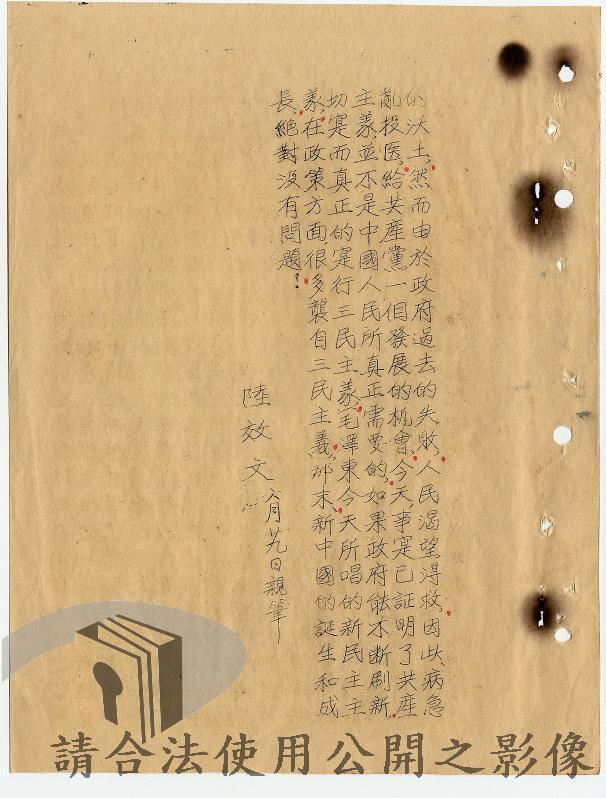 的沃土，然而由於政府過去的失敗，人民渴望得救，因此，病急
亂投医，給共產黨一個發展的机會，今天，事寔已証明了共產
主義，並不是中國人民所真正需要的，如果政府能不断刷新，
切寔而真正的寔行三民主義，毛澤東今天所唱的新民主主
義，在政策方面，很多襲自三民主義，那末，新中國的誕生和成
長，絕對没有問題！
陸效文 八月廿九日親筆
請合法使用公開之影像